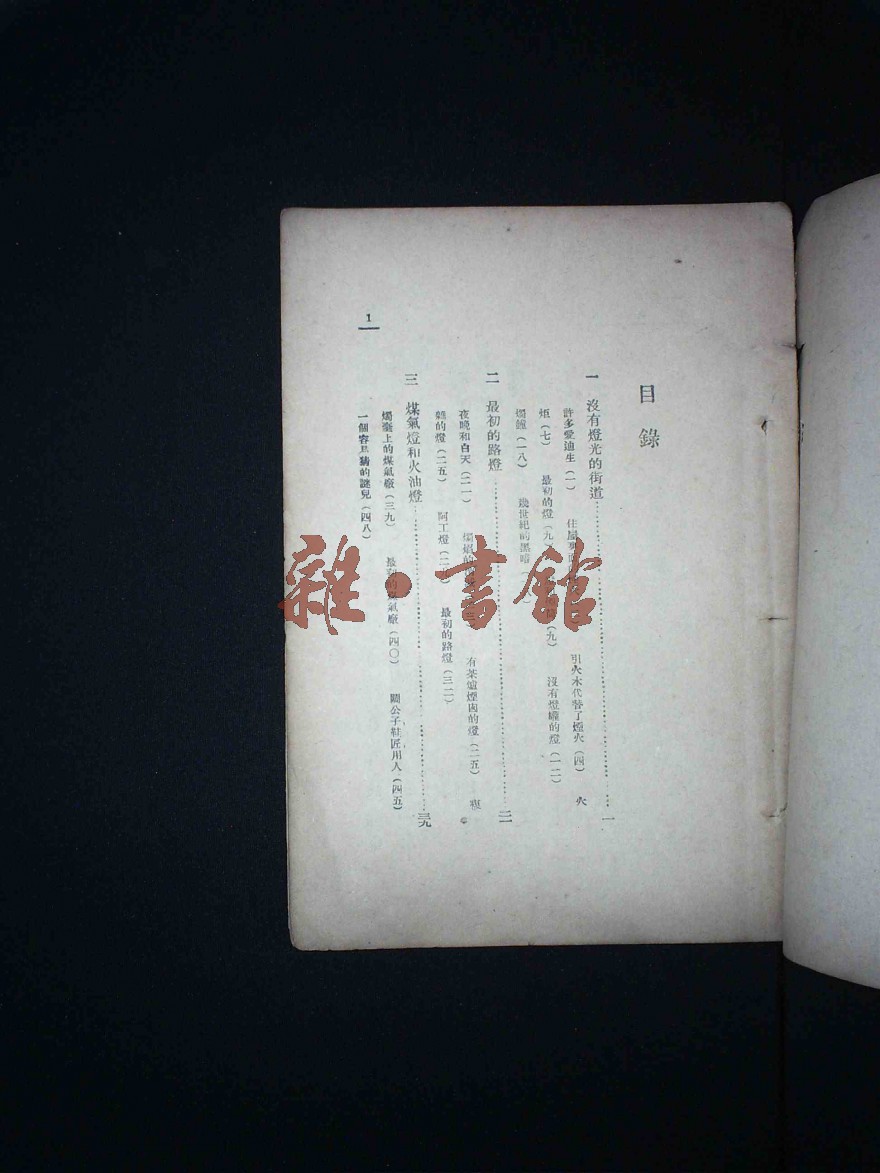 目錄
一 沒有燈光的街道……一
許多愛迪生(一) 住屋 引火木代替了燈火(四) 火
炬(七) 最初的燈(九) (九) 沒有燈罐的燈(一二)
燭鐘(一八) 幾世紀的黑暗
二 最初的路燈……二一
夜晚和白天(二一) 有茶爐煙囪的燈(二五)
的燈(二五) 阿工燈 最初的路燈(三二)
三 煤氣燈和火油燈……三九
燭臺上的煤氣廠(三九) 最初的煤氣廠(四〇) 闊公子鞋匠用人(四五)
一個容易猜的謎兒(四八)
1
雜·書館